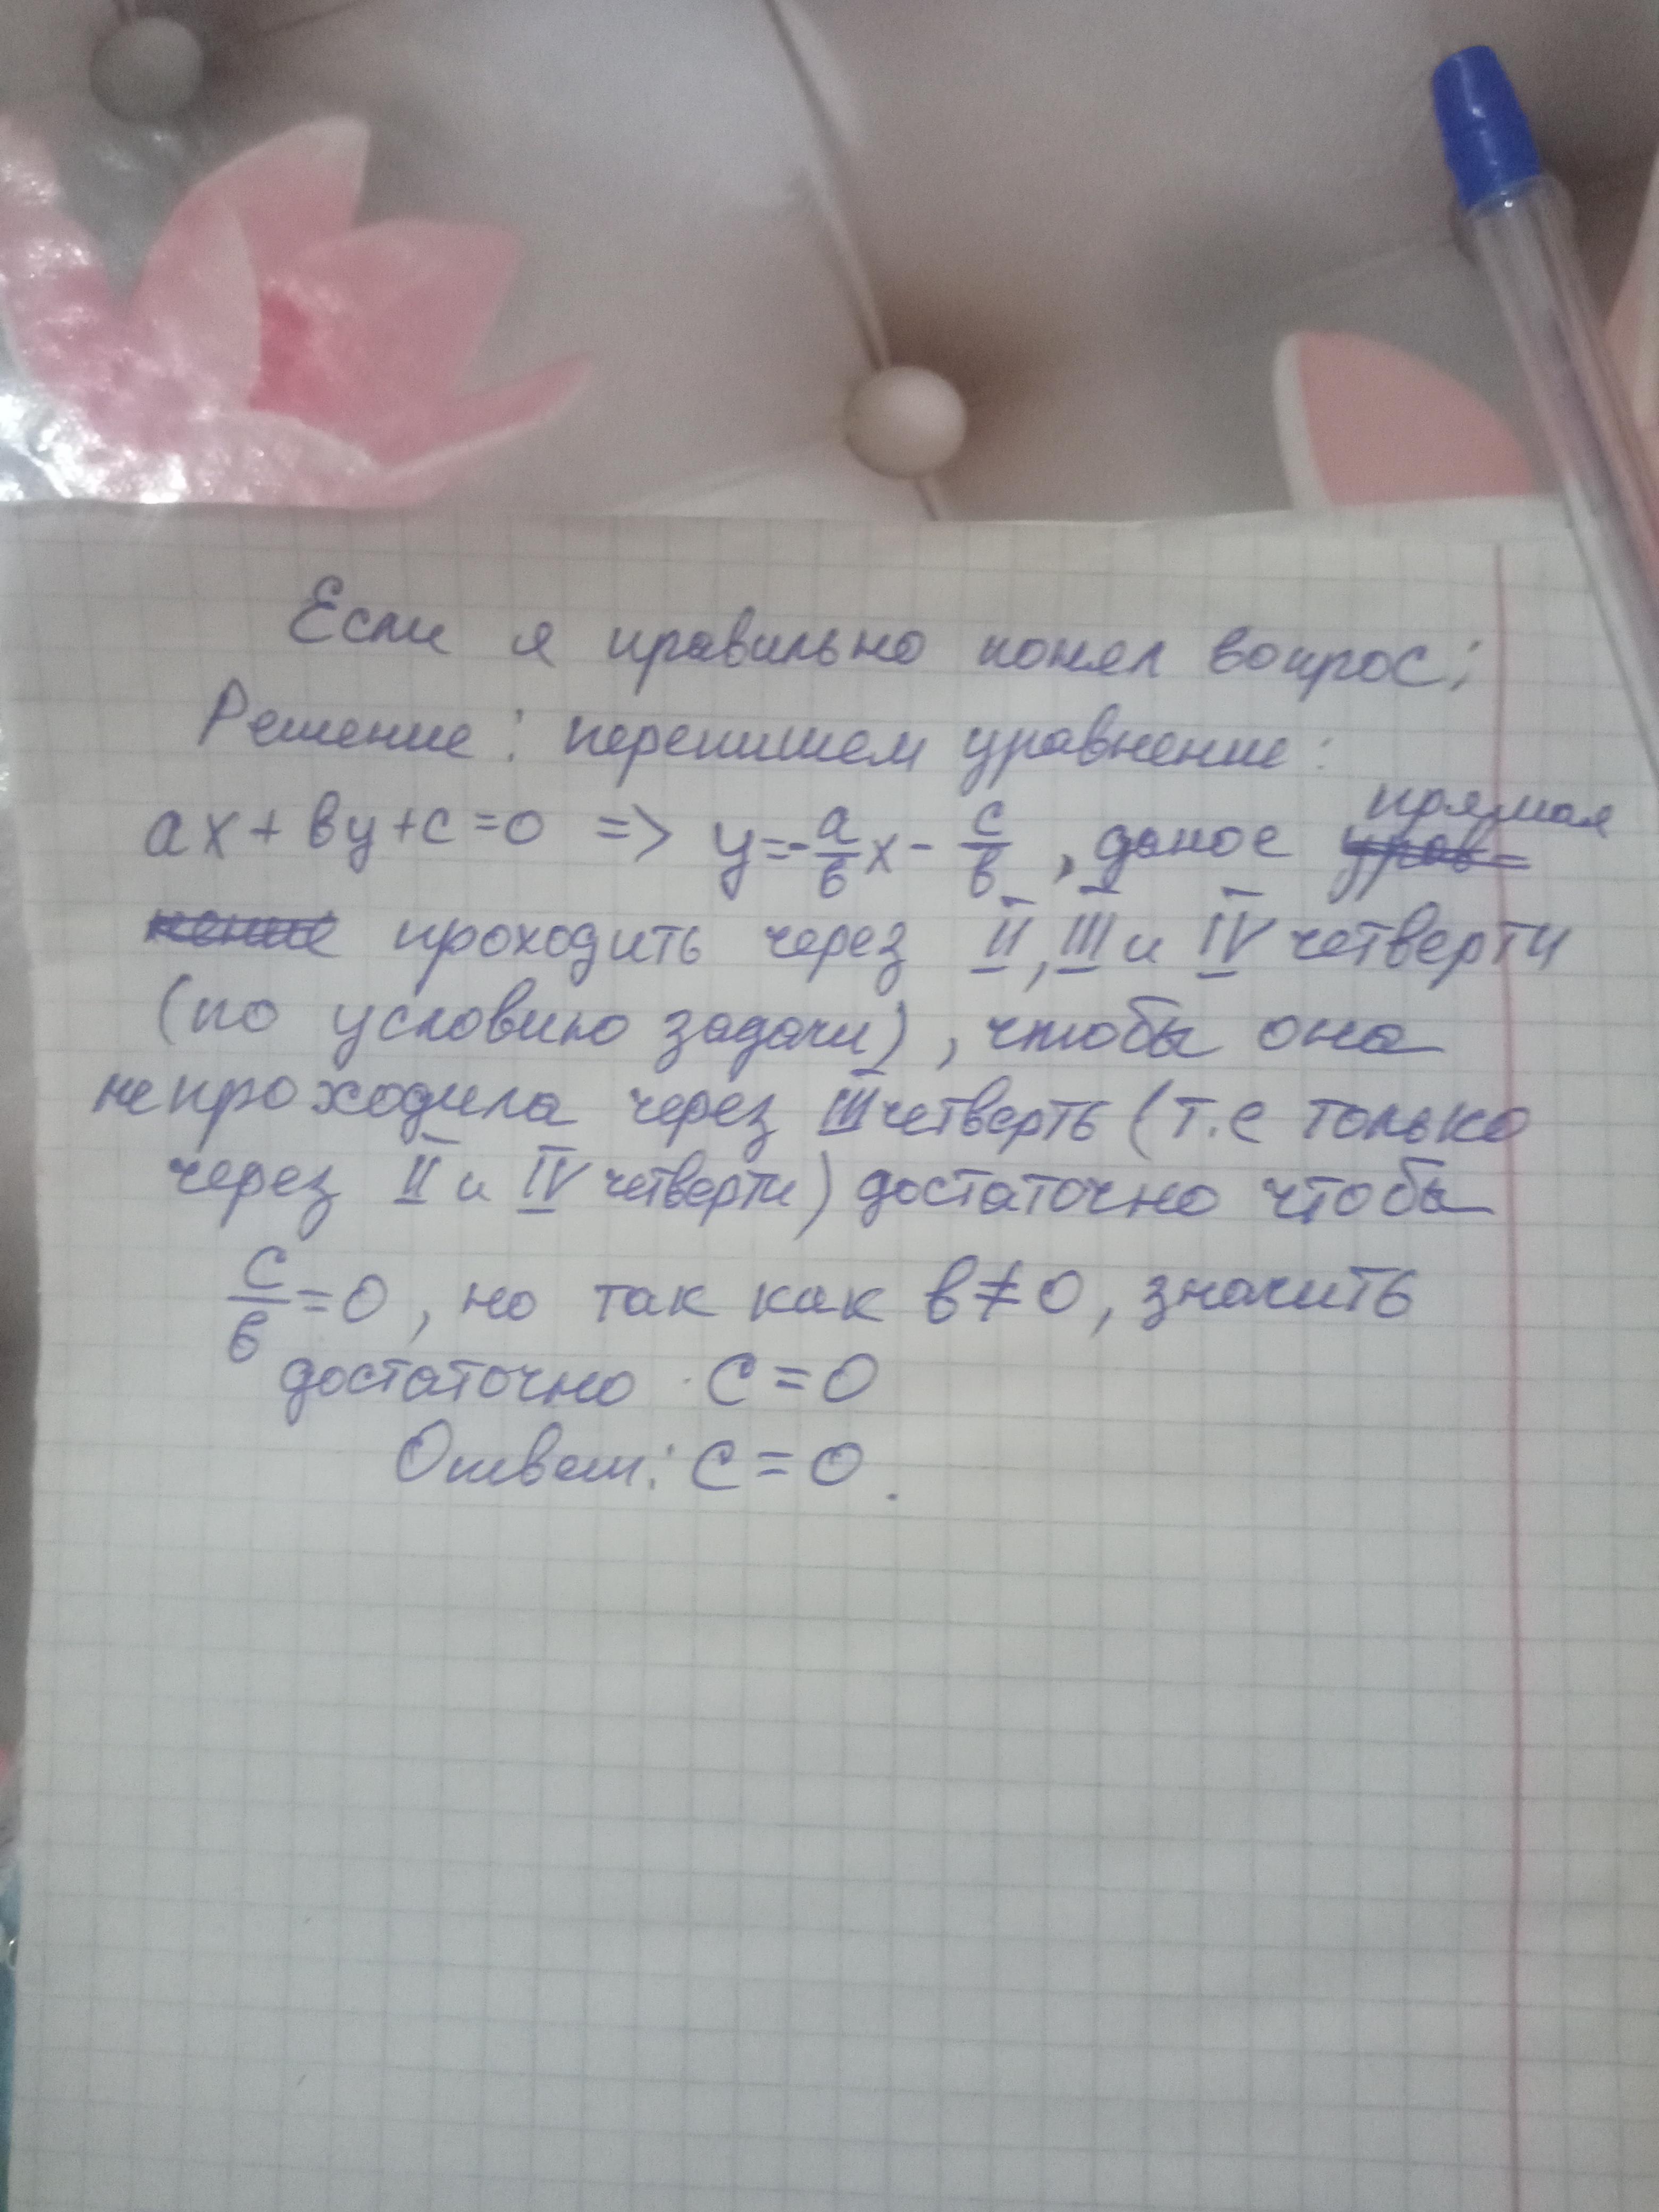 Если я правильно понял вопрос;
Решение: перепишем уравнение:
ax + by + c = 0 => y = - a/b x - c/b, даное прямая
проходить через II, III и IV четверти
(по условию задачи), чтобы она
не проходила через III четверть (т.е только
через II и IV четверти) достаточно чтобы
c/b = 0, но так как b ≠ 0, значить
достаточно c = 0
Ответ: c = 0.